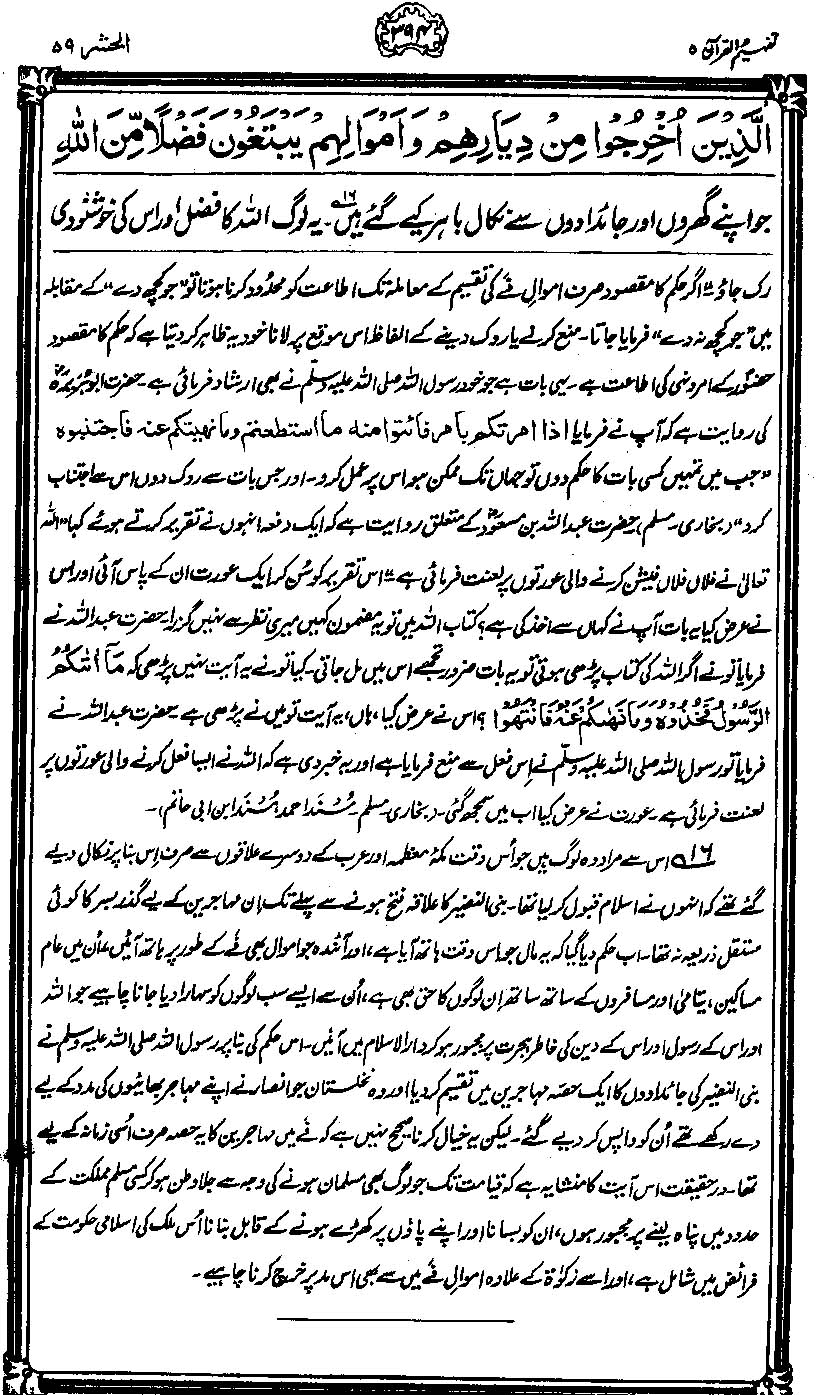 تفہیم القرآن ۵
۳۹۴
الحشر ۵۹
الَّذِيْنَ اُخْرِجُوْا مِنْ دِيَارِهِمْ وَاَمْوَالِهِمْ يَبْتَغُوْنَ فَضْلًا مِّنَ اللهِ
جو اپنے گھروں اور جائدادوں سے نکال باہر کیے گئے ہیں۱۶؎۔ یہ لوگ اللہ کا فضل اور اس کی خوشنودی
رک جاؤ" اگر حکم کا مقصود صرف اموالِ فَے کی تقسیم کے معاملہ تک اطاعت کو محدود کرنا ہوتا تو "جو کچھ دے" کے مقابلہ
میں "جو کچھ نہ دے" فرمایا جاتا۔ منع کرنے یا روک دینے کے الفاظ اس موقع پر لانا خود یہ ظاہر کر دیتا ہے کہ حکم کا مقصود
حضورؐ کے امر و نہی کی اطاعت ہے۔ یہی بات ہے جو خود رسول اللہ صلی اللہ علیہ وسلم نے بھی ارشاد فرمائی ہے۔ حضرت ابو ہریرہؓ
کی روایت ہے کہ آپ نے فرمایا اذا امرتكم بامر فائتوا منه ما استطعتم وما نهيتكم عنه فاجتنبوه
"جب میں تمہیں کسی بات کا حکم دوں تو جہاں تک ممکن ہو اس پر عمل کرو۔ اور جس بات سے روک دوں اس سے اجتناب
کرو" (بخاری۔ مسلم)۔ حضرت عبداللہ بن مسعودؓ کے متعلق روایت ہے کہ ایک دفعہ انہوں نے تقریر کرتے ہوئے کہا "اللہ
تعالیٰ نے فلاں فلاں فیشن کرنے والی عورتوں پر لعنت فرمائی ہے" اس تقریر کو سُن کر ایک عورت ان کے پاس آئی اور اس
نے عرض کیا یہ بات آپ نے کہاں سے اخذ کی ہے؟ کتاب اللہ میں تو یہ مضمون کہیں میری نظر سے نہیں گزرا۔ حضرت عبداللہ نے
فرمایا تو نے اگر اللہ کی کتاب پڑھی ہوتی تو یہ بات ضرور تجھے اس میں مل جاتی۔ کیا تو نے یہ آیت نہیں پڑھی کہ مَآ اٰتٰىكُمُ
الرَّسُوْلُ فَخُذُوْهُ وَمَا نَهٰىكُمْ عَنْهُ فَانْتَهُوْا؟ اس نے عرض کیا، ہاں، یہ آیت تو میں نے پڑھی ہے۔ حضرت عبداللہ نے
فرمایا تو رسول اللہ صلی اللہ علیہ وسلم نے اِس فعل سے منع فرمایا ہے اور یہ خبر دی ہے کہ اللہ نے ایسا فعل کرنے والی عورتوں پر
لعنت فرمائی ہے۔ عورت نے عرض کیا اب میں سمجھ گئی۔ (بخاری۔ مسلم۔ مُسنَد احمد۔ مُسنَد ابن ابی حاتم)۔
۱۶؎ اس سے مراد وہ لوگ ہیں جو اُس وقت مکۂ معظمہ اور عرب کے دوسرے علاقوں سے صرف اِس بنا پر نکال دیے
گئے تھے کہ انہوں نے اسلام قبول کر لیا تھا۔ بنی النضیر کا علاقہ فتح ہونے سے پہلے تک اِن مہاجرین کے لیے گذر بسر کا کوئی
مستقل ذریعہ نہ تھا۔ اب حکم دیا گیا کہ یہ مال جو اس وقت ہاتھ آیا ہے، اور آئندہ جو اموال بھی فَے کے طور پر ہاتھ آئیں، اُن میں عام
مساکین، یتامٰی اور مسافروں کے ساتھ ساتھ اِن لوگوں کا حق بھی ہے، اُن سے ایسے سب لوگوں کو سہارا دیا جانا چاہیے جو اللہ
اور اس کے رسول اور اس کے دین کی خاطر ہجرت پر مجبور ہو کر دارالاسلام میں آئیں۔ اس حکم کی بنا پر رسول اللہ صلی اللہ علیہ وسلم نے
بنی النضیر کی جائدادوں کا ایک حصہ مہاجرین میں تقسیم کر دیا اور وہ نخلستان جو انصار نے اپنے مہاجر بھائیوں کی مدد کے لیے
دے رکھے تھے اُن کو واپس کر دیے گئے۔ لیکن یہ خیال کرنا صحیح نہیں ہے کہ فَے میں مہاجرین کا یہ حصہ صرف اُسی زمانہ کے لیے
تھا۔ درحقیقت اس آیت کا منشا یہ ہے کہ قیامت تک جو لوگ بھی مسلمان ہونے کی وجہ سے جلاوطن ہو کر کسی مسلم مملکت کے
حدود میں پناہ لینے پر مجبور ہوں، ان کو بسانا اور اپنے پاؤں پر کھڑے ہونے کے قابل بنانا اُس ملک کی اسلامی حکومت کے
فرائض میں شامل ہے، اور اسے زکوٰۃ کے علاوہ اموالِ فَے میں سے بھی اس مد پر خرچ کرنا چاہیے۔